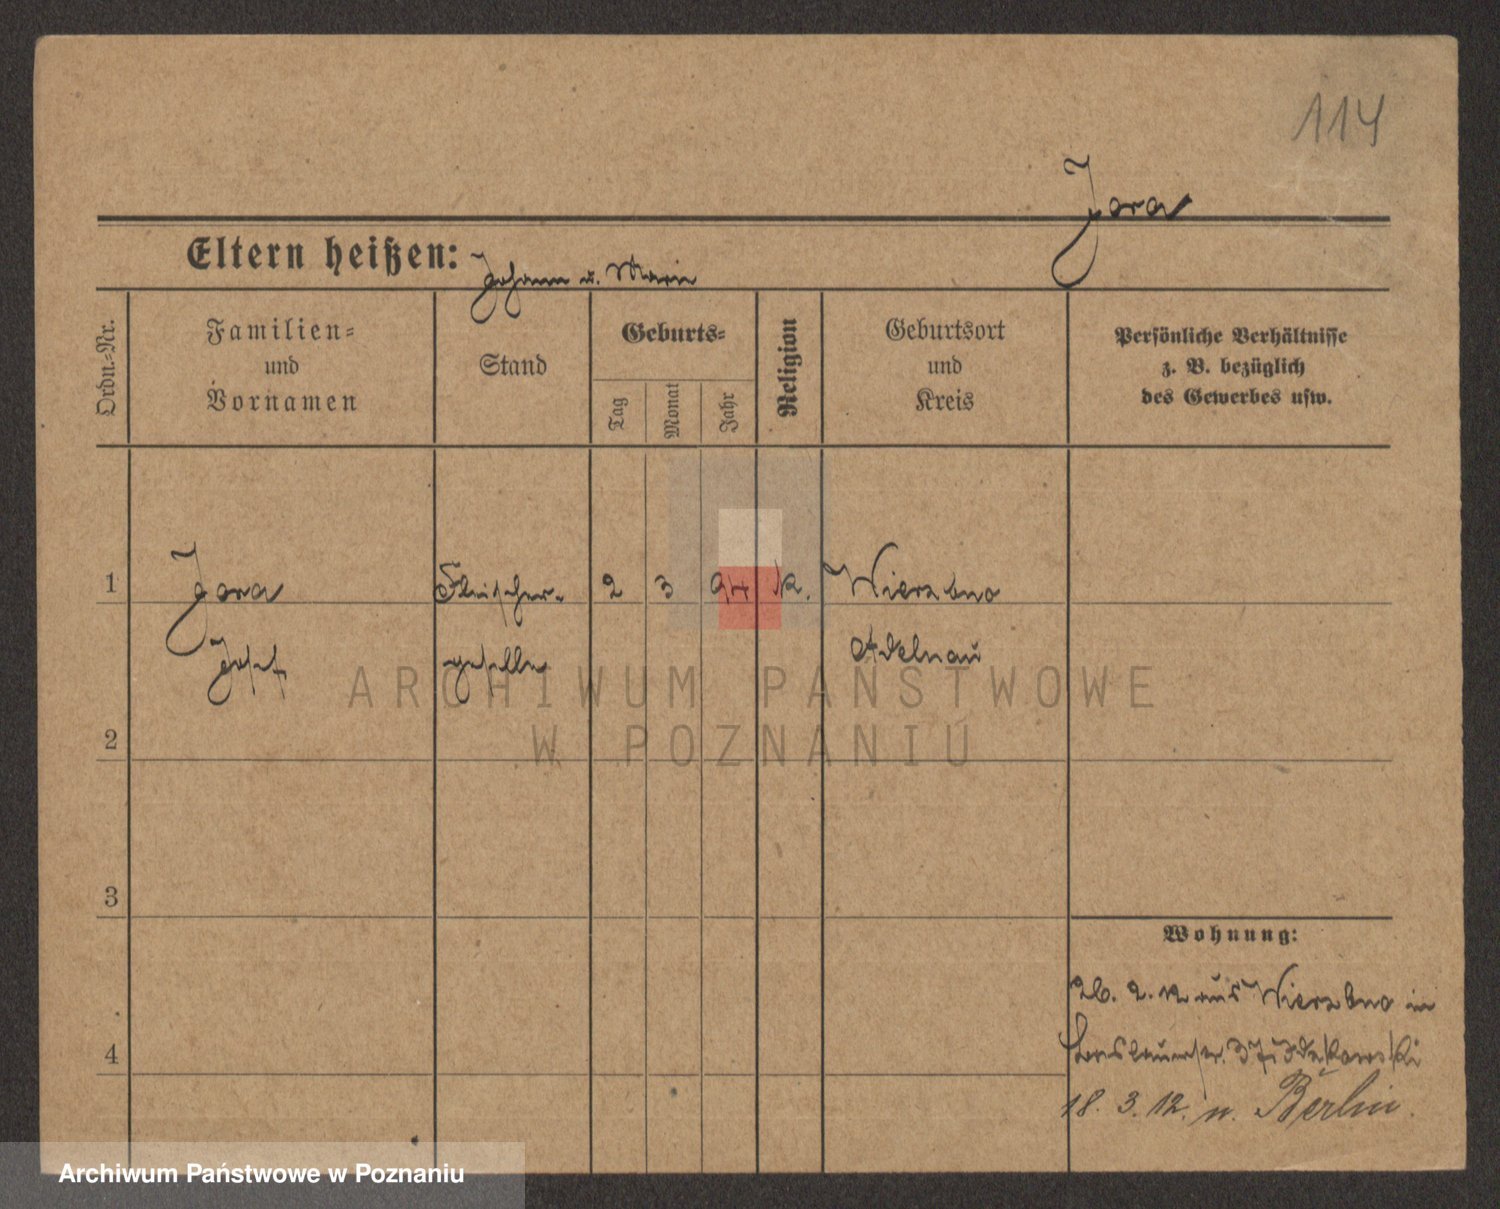 114
Jora
Eltern heißen: Johann u. Marie
Ordn.-Nr.
Familien-
und
Vornamen
Stand
Geburts-
Tag
Monat
Jahr
Religion
Geburtsort
und
Kreis
Persönliche Verhältnisse
z. B. bezüglich
des Gewerbes usw.
1 Jora Fleischer- 2 3 94 K. Wierzbno
Josef geselle Adelnau
ARCHIWUM PAŃSTWOWE
W POZNANIU
2
3
Wohnung:
26. 2. 12 aus Wierzbno in
37
4
18. 3. 12. n. Berlin.
Archiwum Państwowe w Poznaniu